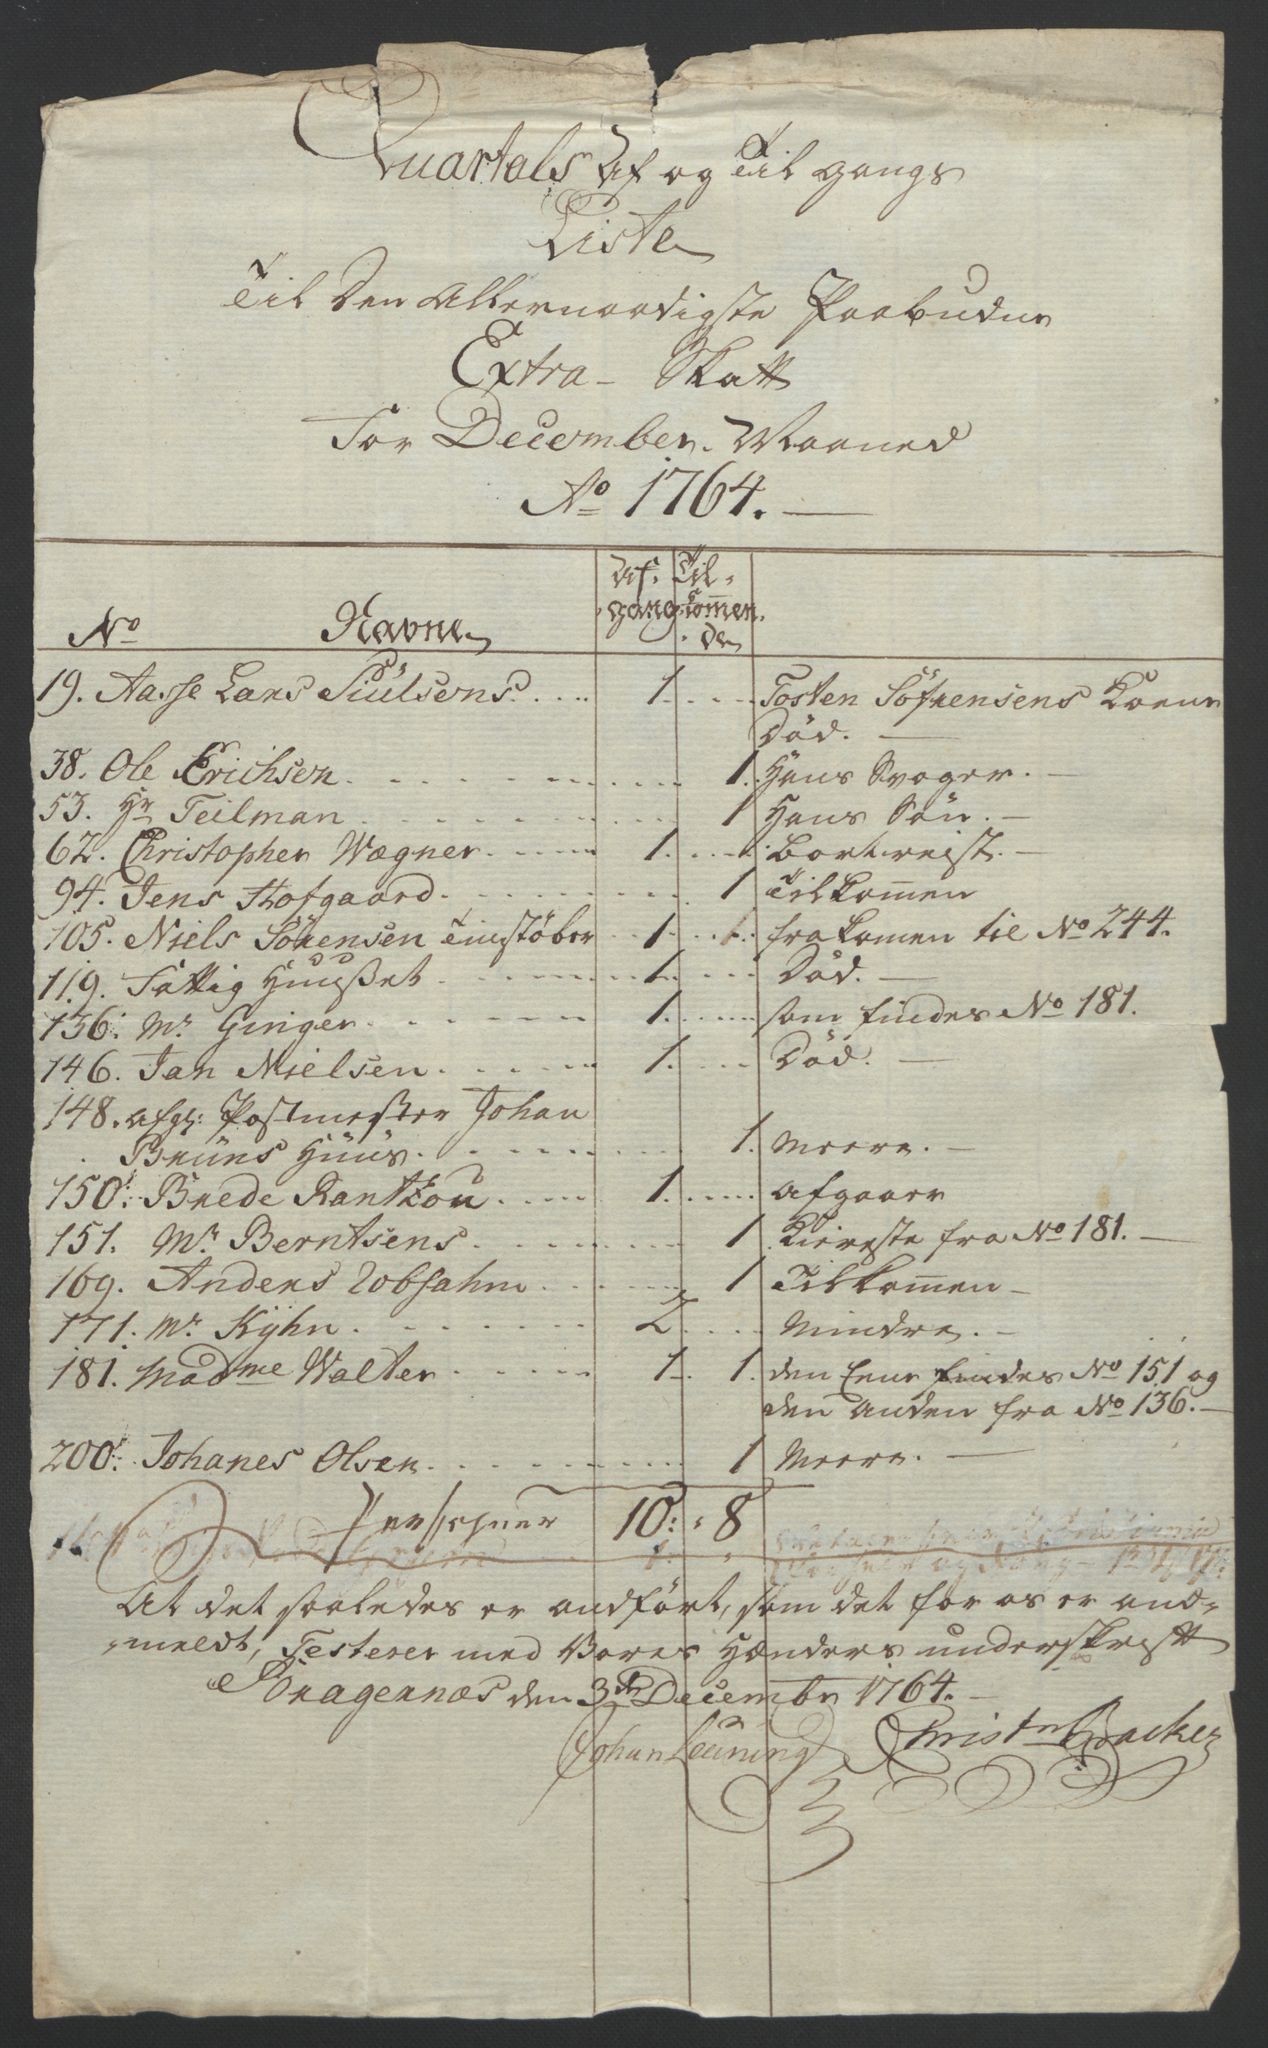 Quartals Af og Til gangs
Liste
Til Den Allernaadigste Paabudne
Extra - Skatt
For December. Maaned
Ao 1764. —
No Navne Af- gang Til- kommen- de
19. Aasse Lars Siulsens.... 1..... Tosten Sörensens Kone
Död. —
38. Ole Erichsen. . . . . . 1. Hans Svoger. —
53. Hr Teilman . . . . . . 1 Hans Sön. —
62. Christopher Wægner. . . . 1. . . . Bortreist. —
94. Jens Hofgaard . . . . . 1 Tilkommen
105. Niels Sörensen Tinstöber . 1 . . . frakomen til No 244.
119. Fattig Huusset . . . . 1. . . . Död. —
136. Mr Ginger. . . . . . 1. . . . som findes No 181.
146. Jan Nielsen . . . . . 1. . . . Död. —
148. afg: Postmester Johan
Bruns Huus. . . . . . 1. Meere. —
150: Brede Rantzou . . . . 1. . . . afgaaer
151. Mr Berntsens . . . . . 1 Kiereste fra No 181. —
169. Anders Robsahm . . . . 1 Tilkommen —
171. Mr Kyhn. . . . . . 2. . . . Mindre. —
181. Madme Walter . . . . 1. 1. den Eene findes No 151 og
den anden fra No 136. —
200: Johanes Olsen. . . . . 1 Meere. —
Persohner 10: . 8
At det saaledes er andfört, som det for os er and-
meldt, Testerer med Vores Hænders underskrift
Bragernæs den 3de Decembr 1764. —
Johan Leüning Christn Backer